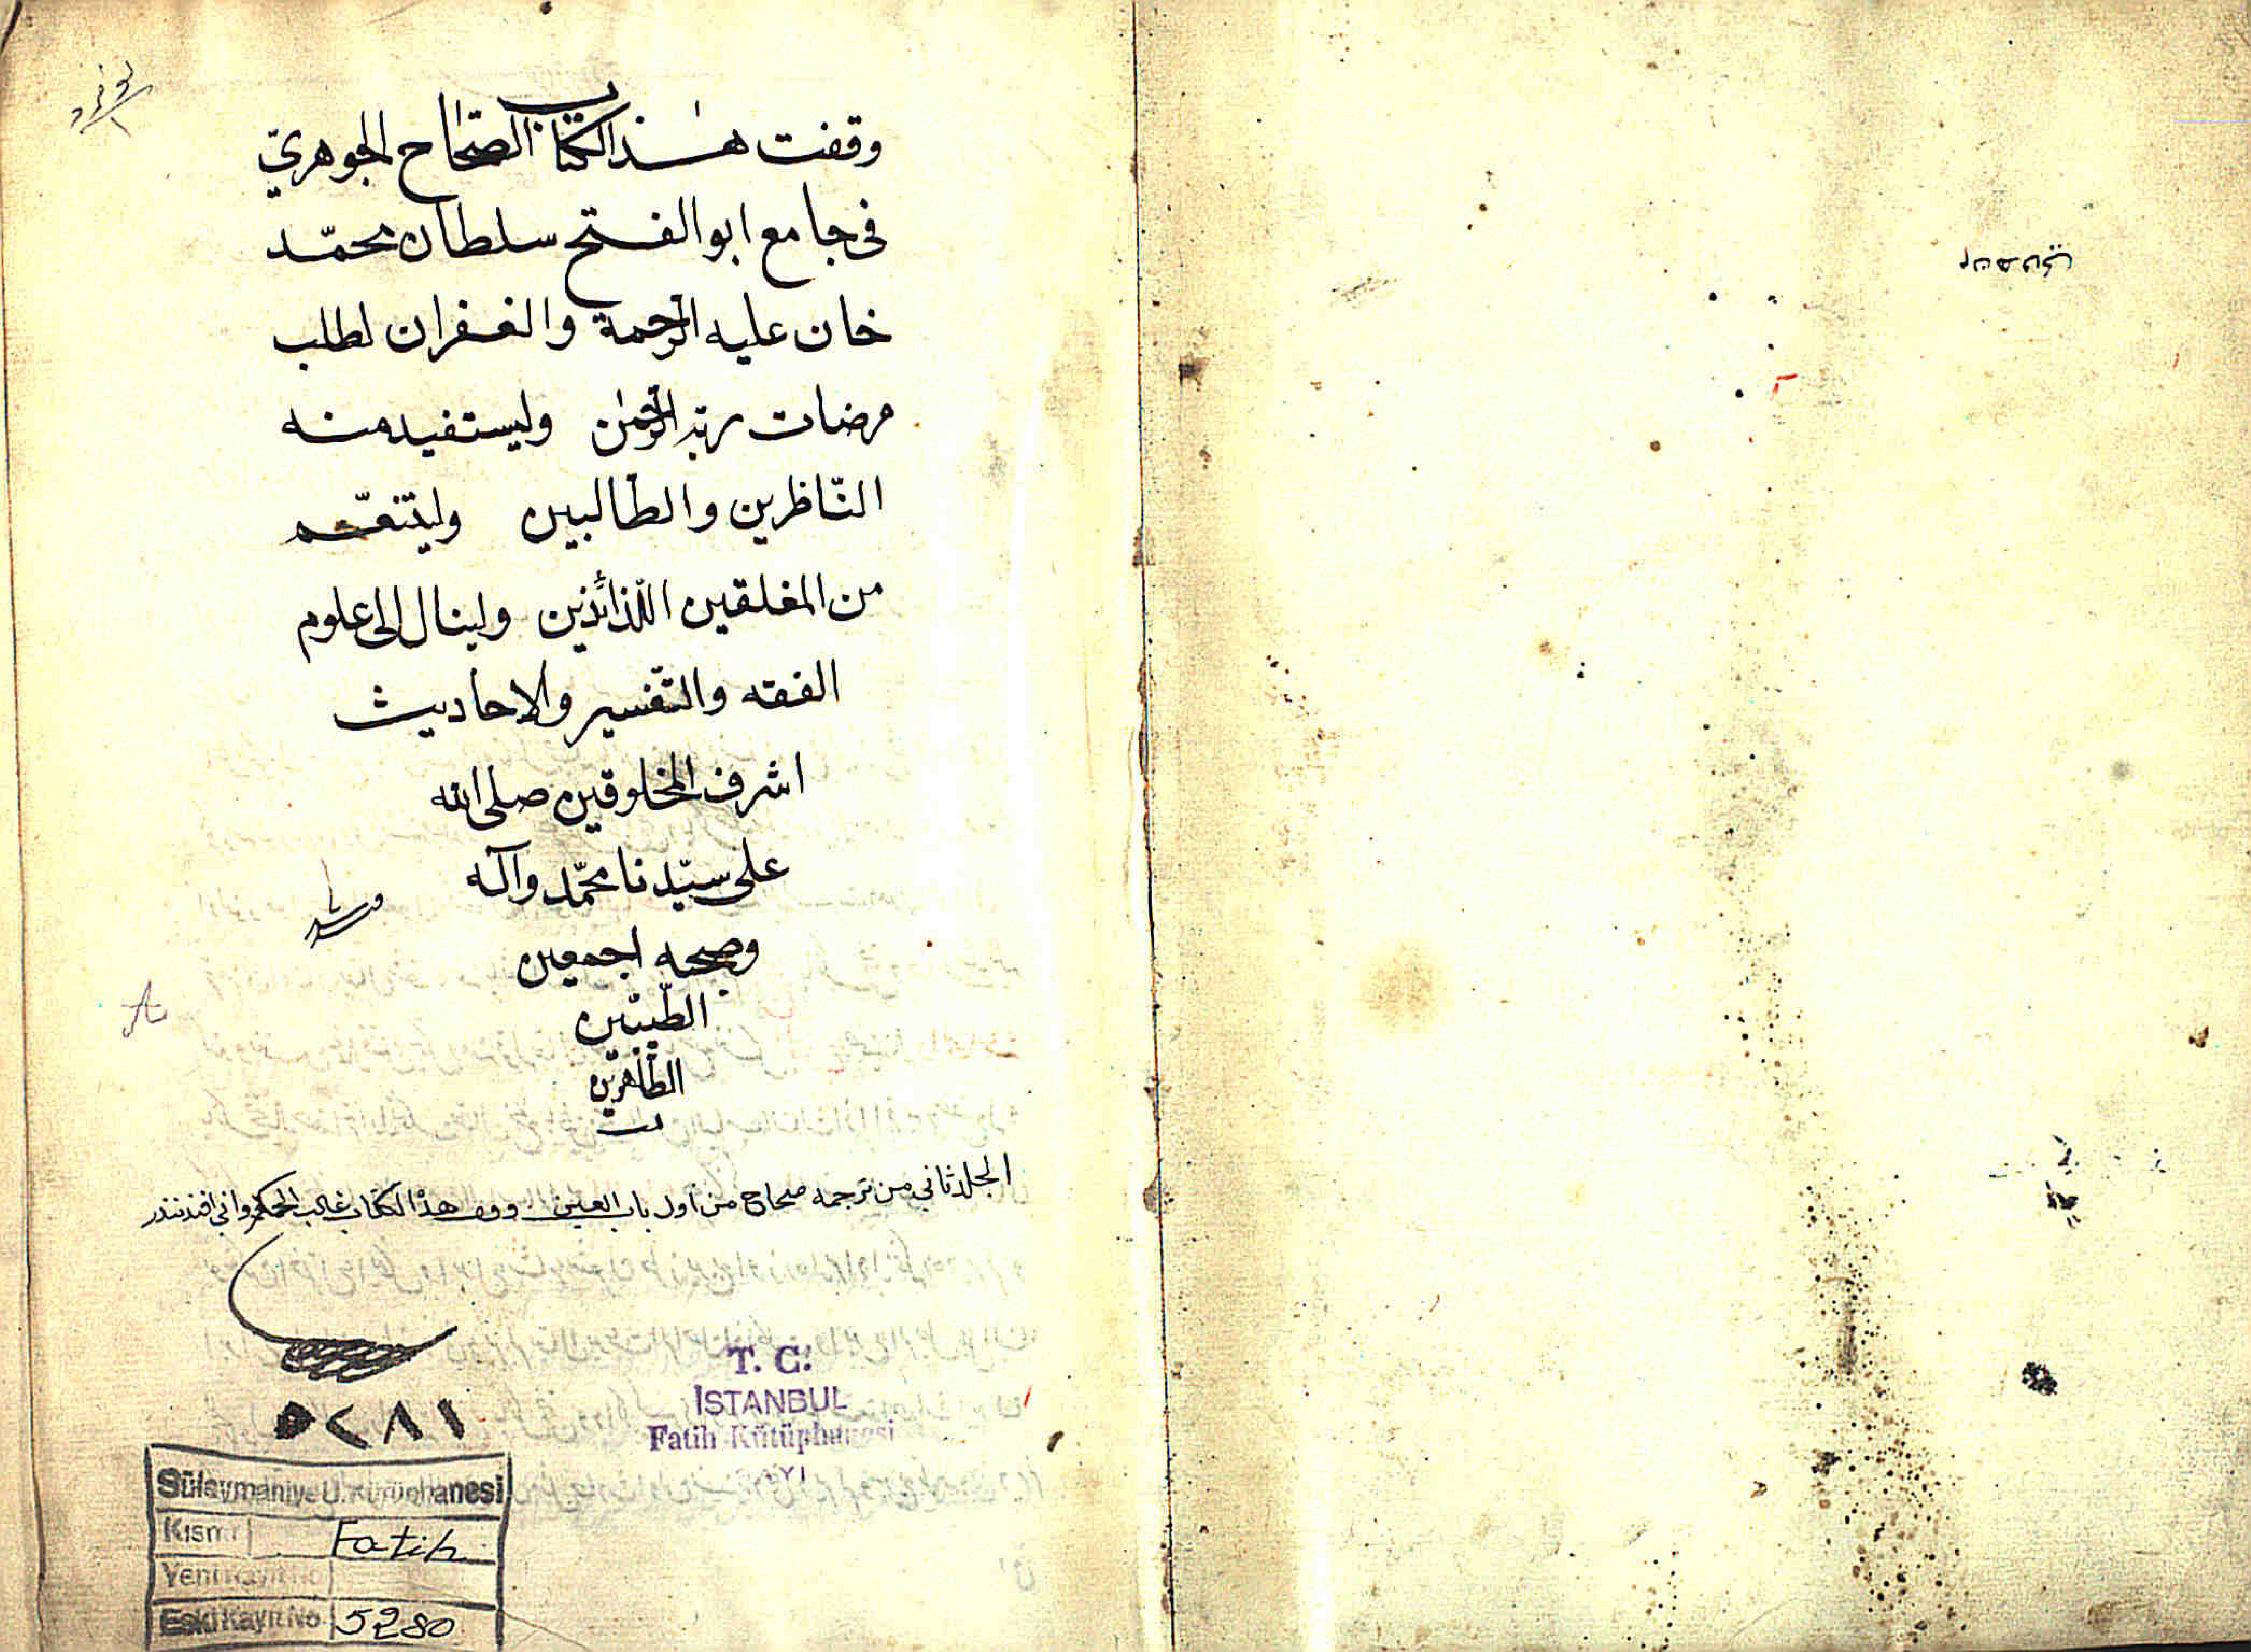 وقفت هذا الكتاب الصحاح الجوهري
فى جامع ابو الفتح سلطان محمّد
خان عليه الرحمة والغفران لطلب
مرضات ربّه الرّحمٰن وليستفيد منه
النّاظرين والطالبين وليتنعّم
من المغلقين اللّذائذين ولينال الى علوم
الفقه والتّفسير والاحاديث
اشرف المخلوقين صلى الله
على سيّدنا محمّد وآله
وصحبه اجمعين
الطّيّبين
الطّاهرين
الجلد ثاني من ترجمه صحاح من اول باب العين هذا الكتاب
٥٢٨١
T. C.
İSTANBUL
Fatih Kütüphanesi
SAYI
Süleymaniye U. Kütüphanesi
Kısmı Fatih
Yeni Kayıt No
Eski Kayıt No 5280